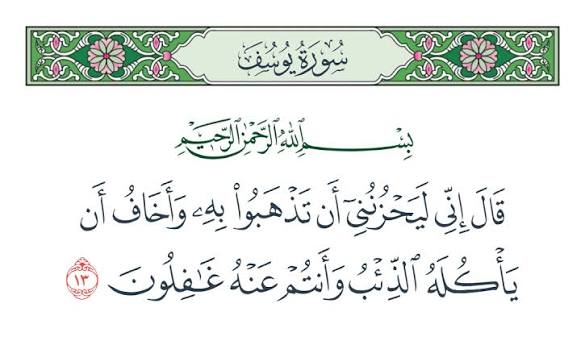 سُورَةُ يُوسُفَ
بِسْمِ ٱللَّهِ ٱلرَّحْمَٰنِ ٱلرَّحِيمِ
قَالَ إِنِّي لَيَحْزُنُنِيٓ أَن تَذْهَبُوا۟ بِهِۦ وَأَخَافُ أَن
يَأْكُلَهُ ٱلذِّئْبُ وَأَنتُمْ عَنْهُ غَٰفِلُونَ ١٣